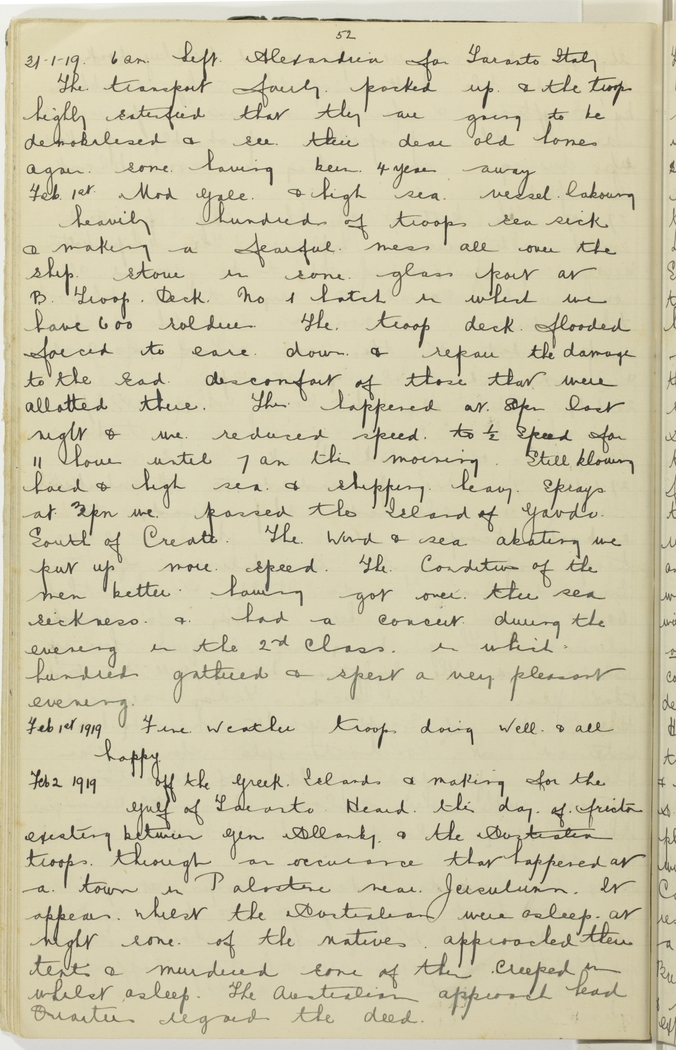 52
31-1-19. 6 am. left. Alexandria for Taranto Italy
The. transport fairly. packed up. & the troops
highly satisfied that they are going to be
demobilised & see. their dear old homes
again. some. having been. 4 years away
Feb. 1st. Mod Gale. & high sea. vessel. labouring
heavily hundreds of troops sea sick
& making a fearful. mess all over the
ship. stove in some. glass port at
B. Troop. Deck. No 1 hatch in which we
have 600 soldiers The. troop deck. flooded
forced to ease. down. & repair the damage
to the and. discomfort of those that were
allotted there. This happened at. 8pm last
night & we. reduced speed. to ½ Speed for
11 hours until 7 am this morning. Still blowing
hard & high sea. & shipping heavy. Sprays
at 3pm we. passed the Island of Gavdo.
South of Create. The. Wind & sea abating we
put up more. speed. The. Condition of the
men better. having got over. their sea
sickness. &. had a concert. during the
evening in the 2nd Class. in which.
hundreds gathered & spent a very pleasant
evening.
Feb 1st 1919 Fine Weather troops doing well. & all
happy
Feb 2 1919 off the Greek. Islands & making for the
gulf of Taranto. Heard. this day. of friction
existing between Gen Allanby. & the Australian
troops. through an occurance that happened at
a. town in Palastine near. Jerusulumn. It
appears. whilst the Australians were asleep. at
night some. of the natives. approached their
tents & murdered some of them. Creeped in
whilst asleep. The Australian approach head
Quarters regard the deed.